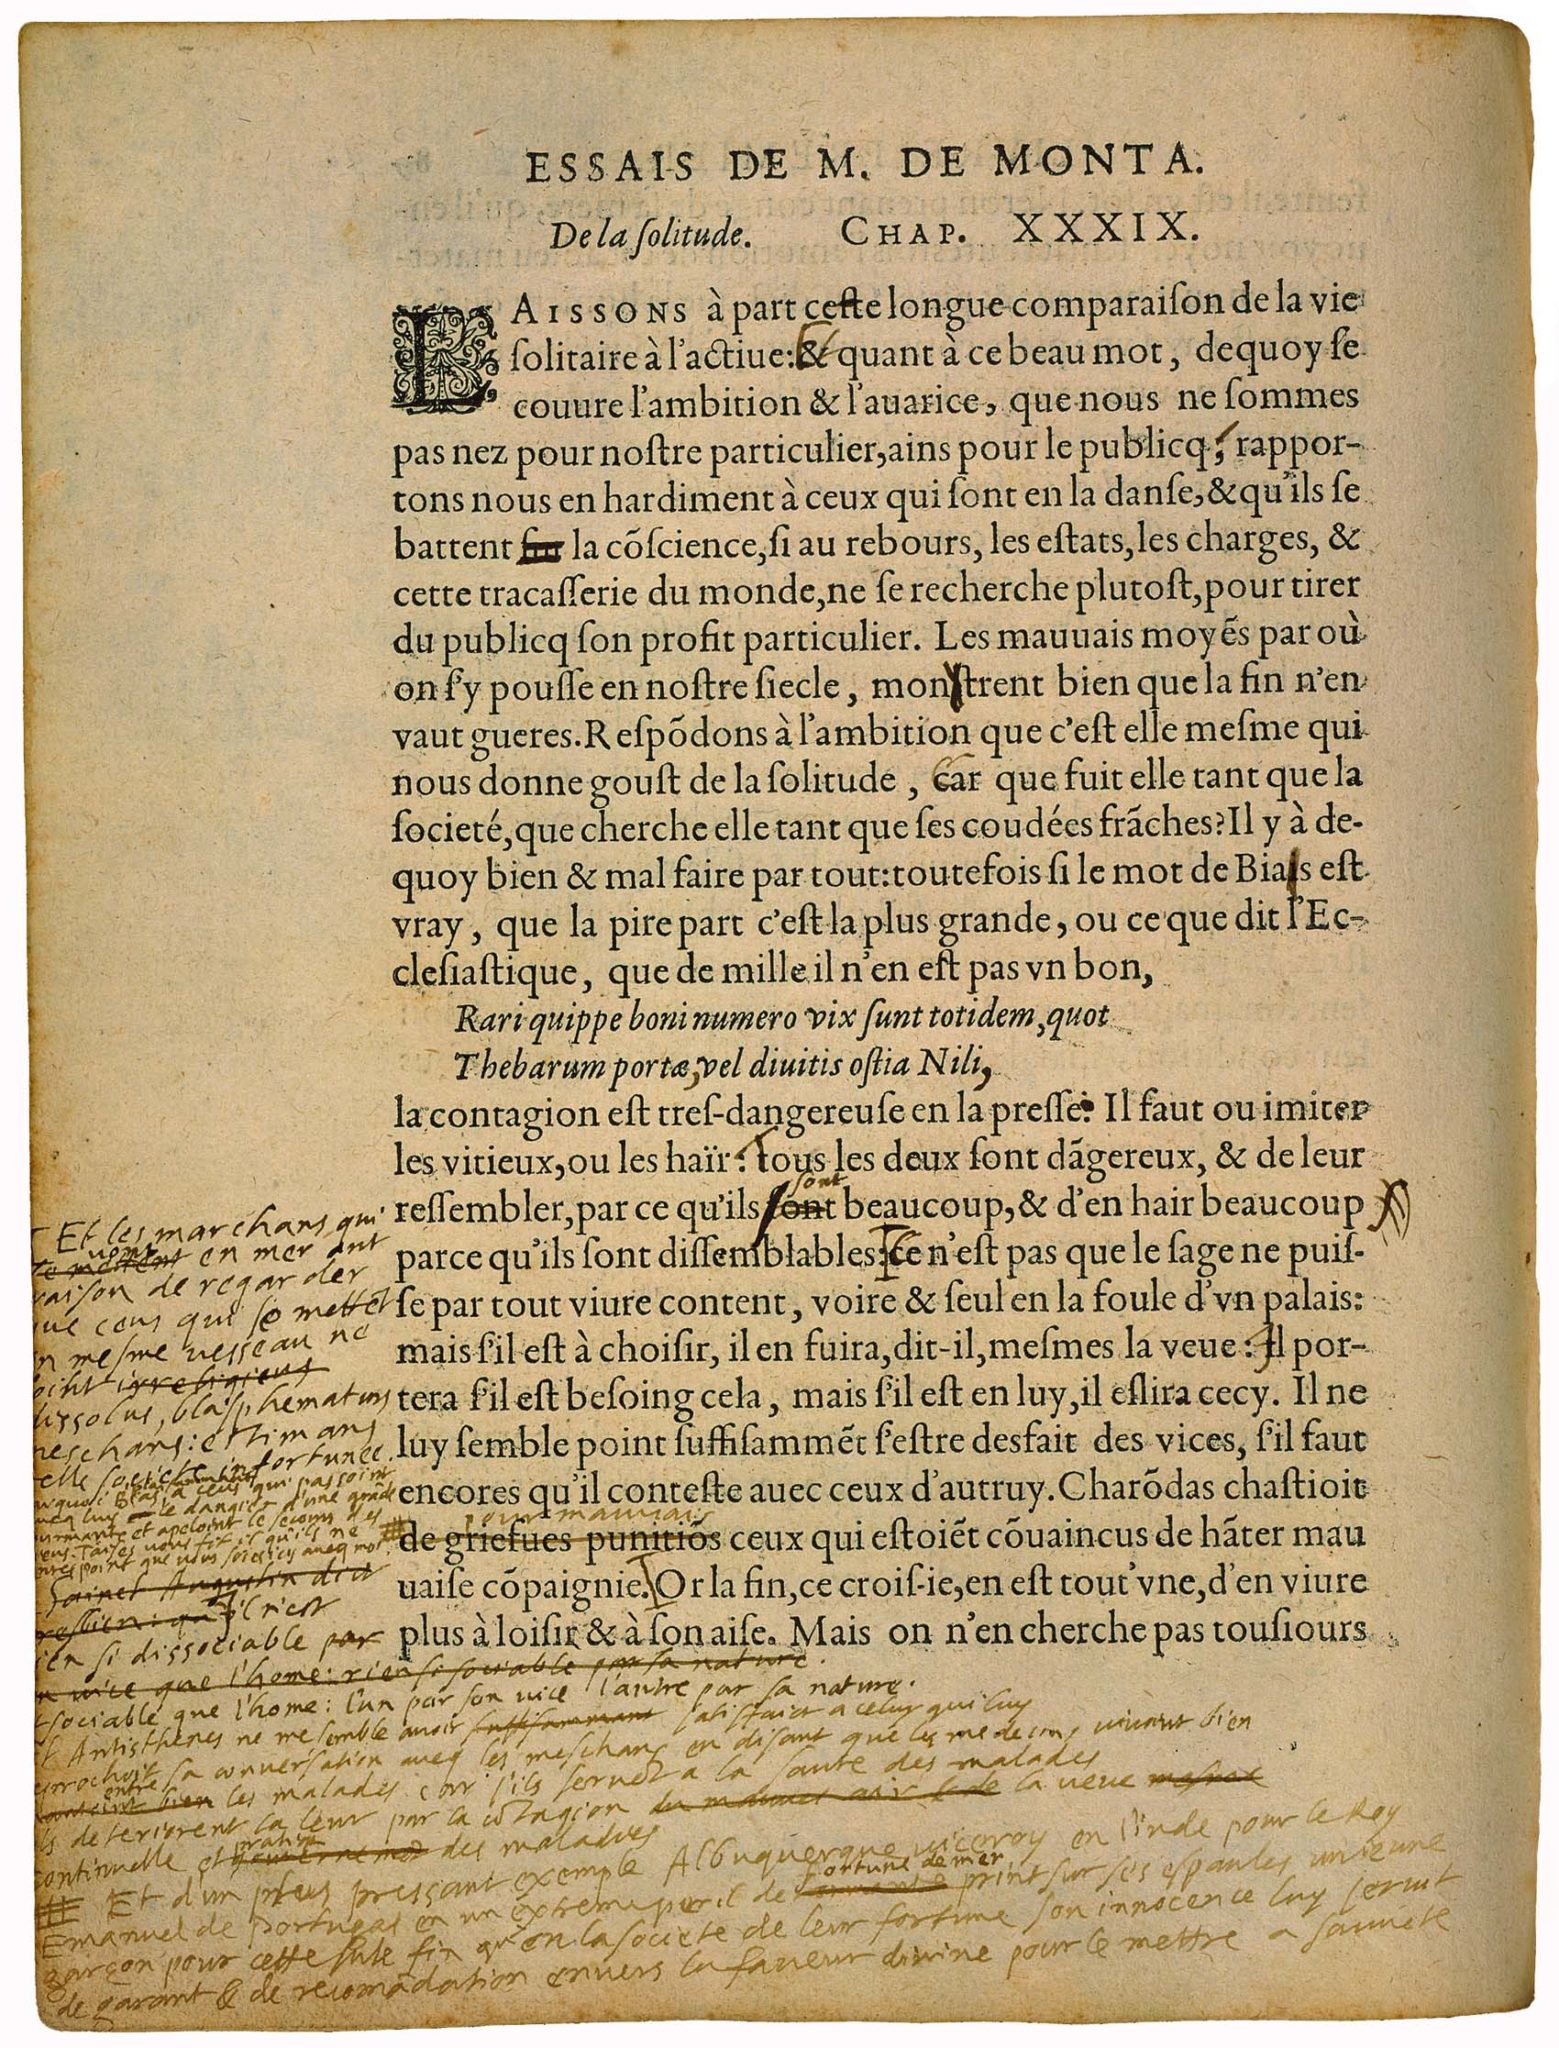 ESSAIS DE M. DE MONTA.
De la ſolitude. CHAP. XXXIX.
LAISSONS à part ceſte longue comparaiſon de la vie
ſolitaire à l'actiue: & quant à ce beau mot, dequoy ſe
couure l'ambition & l'auarice, que nous ne ſommes
pas nez pour noſtre particulier, ains pour le publicq, rappor-
tons nous en hardiment à ceux qui ſont en la danſe, & qu'ils ſe
battent ſur la cõſcience, ſi au rebours, les eſtats, les charges, &
cette tracaſſerie du monde, ne ſe recherche plutoſt, pour tirer
du publicq ſon profit particulier. Les mauuais moyẽs par où
on ſ'y pouſſe en noſtre ſiecle, monſtrent bien que la fin n'en
vaut gueres. Reſpõdons à l'ambition que c'eſt elle meſme qui
nous donne gouſt de la ſolitude, car que fuit elle tant que la
ſocieté, que cherche elle tant que ſes coudées frãches? Il y à de-
quoy bien & mal faire par tout: toutefois ſi le mot de Bias eſt
vray, que la pire part c'eſt la plus grande, ou ce que dit l'Ec-
cleſiaſtique, que de mille il n'en eſt pas vn bon,
Rari quippe boni numero vix ſunt totidem, quot
Thebarum portæ, vel diuitis oſtia Nili,
la contagion eſt treſ-dangereuſe en la preſſe: Il faut ou imiter
les vitieux, ou les haïr: tous les deux ſont dãgereux, & de leur
sont
reſſembler, par ce qu'ils ſont beaucoup, & d'en hair beaucoup
parce qu'ils ſont diſſemblables: ce n'eſt pas que le ſage ne puiſ-
ſe par tout viure content, voire & ſeul en la foule d'vn palais:
mais ſ'il eſt à choiſir, il en fuira, dit-il, meſmes la veue: Il por-
tera ſ'il eſt beſoing cela, mais ſ'il eſt en luy, il eſlira cecy. Il ne
luy ſemble point ſuffiſammẽt ſ'eſtre desfait des vices, ſ'il faut
encores qu'il conteſte auec ceux d'autruy. Charõdas chaſtioit
pour mauvais
de griefues punitiõs ceux qui eſtoiẽt cõuaincus de hãter mau
uaiſe cõpaignie. Or la fin, ce crois-ie, en eſt tout'vne, d'en viure
plus à loiſir & à ſon aiſe. Mais on n'en cherche pas touſiours
Et les marchans qui
vont
se mettent en mer ont
raison de regarder
que ceus qui se mettet
en mesme vesseau ne
soint irreligieus
dissolus, blasphematurs
meschans: estimans
telle societe infortunee.
a ceus qui passoint
le dangier d'une grade
et apeloint le secours des
Sainct Augustin dict
il n'est
rien si dissociable par
vice que l'home: rien si sociable par sa nature.
et sociable que l'home: l'un par son vice l'autre par sa nature.
Et Antisthenes ne me semble avoir suffisammant satisfaict a celuy qui luy
reprochoit sa conversation aveq les meschans en disant que les medecins vivoint bien
entre
les malades car s'ils servet a la sante des malades
ils deteriorent la leur par la cotagion la veue
pratique
continuelle et des maladies
Et d'un plus pressant exemple Albuquerque viceroy en l'inde pour le Roy
fortune de mer
Emanuel de Portugal en un extreme peril de print sur ses espaules un jeune
garçon pour cette sule fin qu'en la societe de leur fortune son innocence luy servit
de garant & de recomādation envers la faveur divine pour le mettre a sauvete